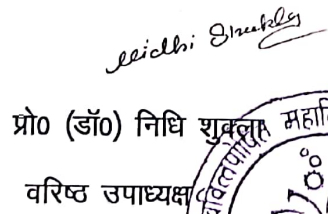 Nidhi Shukla
प्रो0 (डॉ0) निधि शुक्ला
वरिष्ठ उपाध्यक्ष
महावि